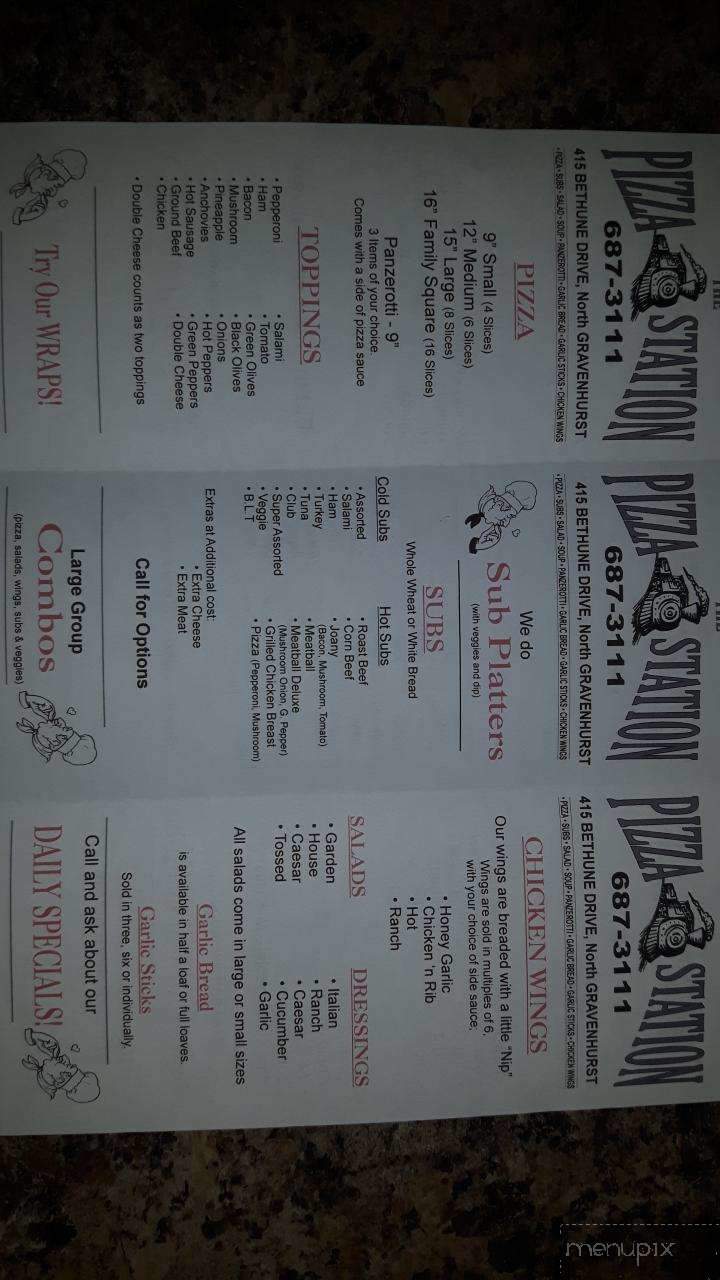 THE
PIZZA STATION
687-3111
415 BETHUNE DRIVE, North GRAVENHURST
• PIZZA • SUBS • SALAD • SOUP • PANZEROTTI • GARLIC BREAD • GARLIC STICKS • CHICKEN WINGS
PIZZA
9" Small (4 Slices)
12" Medium (6 Slices)
15" Large (8 Slices)
16" Family Square (16 Slices)
Panzerotti - 9"
3 Items of your choice.
Comes with a side of pizza sauce
TOPPINGS
• Pepperoni • Salami
• Ham • Tomato
• Bacon • Green Olives
• Mushroom • Black Olives
• Pineapple • Onions
• Anchovies • Hot Peppers
• Hot Sausage • Green Peppers
• Ground Beef • Double Cheese
• Chicken
• Double Cheese counts as two toppings
Try Our WRAPS!
THE
PIZZA STATION
687-3111
415 BETHUNE DRIVE, North GRAVENHURST
• PIZZA • SUBS • SALAD • SOUP • PANZEROTTI • GARLIC BREAD • GARLIC STICKS • CHICKEN WINGS
We do
Sub Platters
(with veggies and dip)
SUBS
Whole Wheat or White Bread
Cold Subs Hot Subs
• Assorted • Roast Beef
• Salami • Corn Beef
• Ham • Joany
• Turkey (Bacon, Mushroom, Tomato)
• Tuna • Meatball
• Club • Meatball Deluxe
• Super Assorted (Mushroom Onion, G. Pepper)
• Veggie • Grilled Chicken Breast
• B.L.T • Pizza (Pepperoni, Mushroom)
Extras at Additional cost:
• Extra Cheese
• Extra Meat
Call for Options
Large Group
Combos
(pizza, salads, wings, subs & veggies)
PIZZA STATION
687-3111
415 BETHUNE DRIVE, North GRAVENHURST
• PIZZA • SUBS • SALAD • SOUP • PANZEROTTI • GARLIC BREAD • GARLIC STICKS • CHICKEN WINGS
CHICKEN WINGS
Our wings are breaded with a little "Nip"
Wings are sold in multiples of 6,
with your choice of side sauce,
• Honey Garlic
• Chicken 'n Rib
• Hot
• Ranch
SALADS DRESSINGS
• Garden • Italian
• House • Ranch
• Caesar • Caesar
• Tossed • Cucumber
• Garlic
All salads come in large or small sizes
Garlic Bread
is available in half a loaf or full loaves.
Garlic Sticks
Sold in three, six or individually.
Call and ask about our
DAILY SPECIALS!
menupix